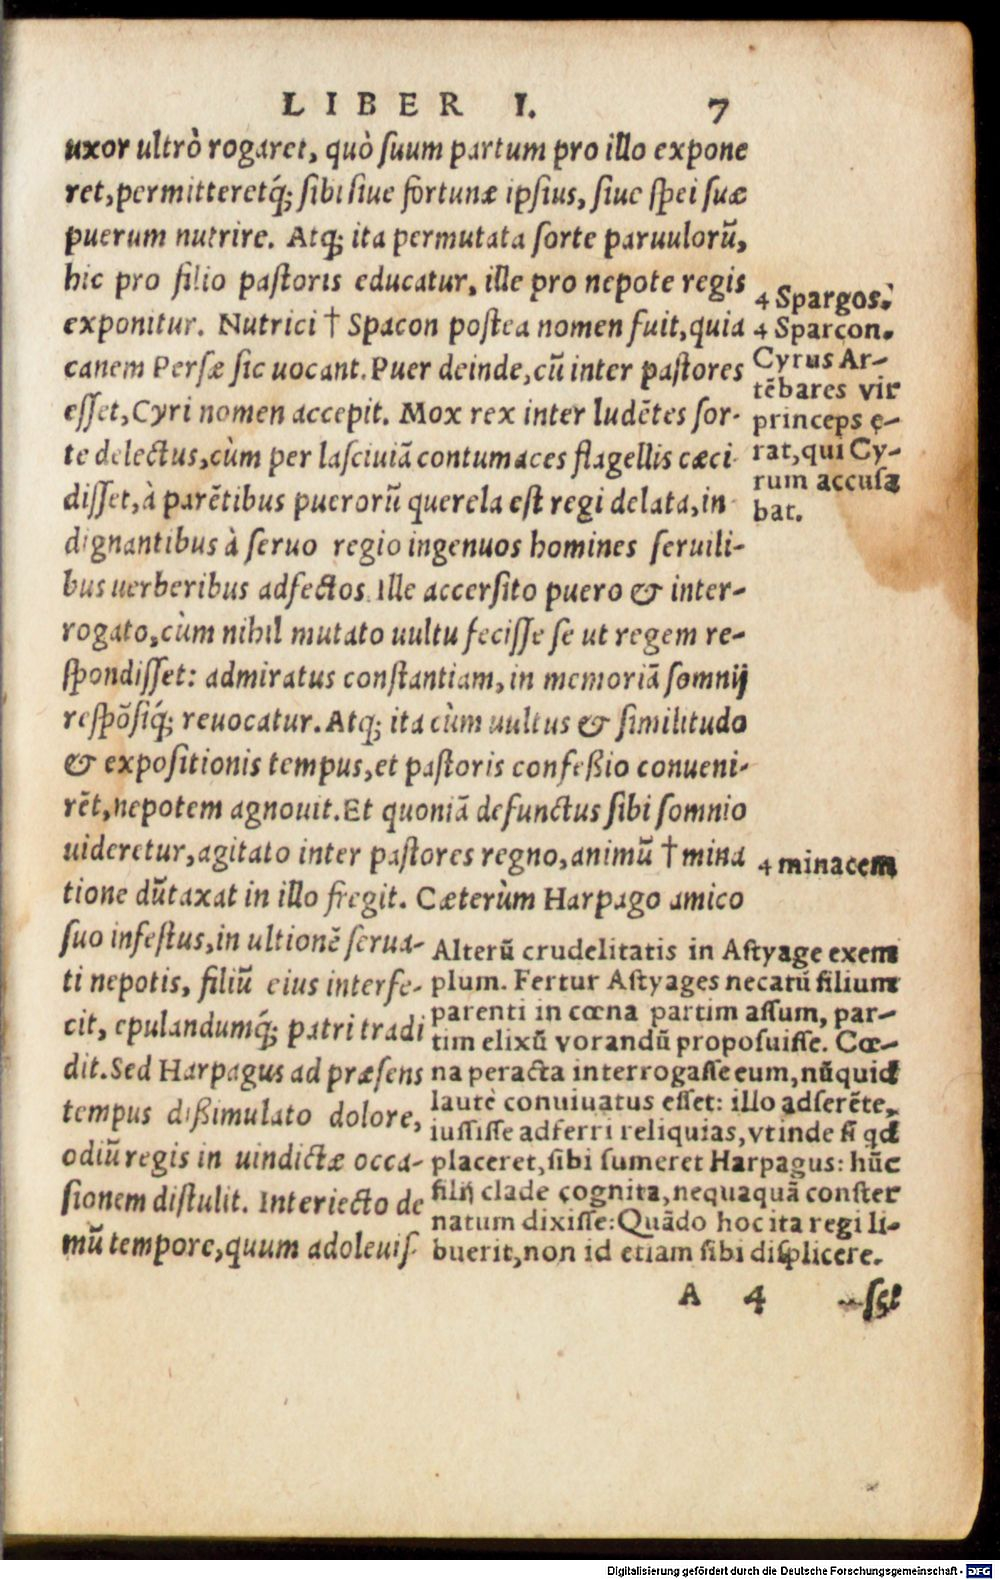 LIBER I. 7
uxor ultrò rogaret, quò suum partum pro illo expone
ret, permitteretq́; sibi siue fortunæ ipsius, siue spei suæ
puerum nutrire. Atq; ita permutata sorte paruulorũ,
hic pro filio pastoris educatur, ille pro nepote regis
exponitur. Nutrici † Spacon postea nomen fuit, quia
canem Persæ sic uocant. Puer deinde, cũ inter pastores
esset, Cyri nomen accepit. Mox rex inter ludẽtes sor-
te delectus, cùm per lasciuiã contumaces flagellis cæci
disset, à parẽtibus puerorũ querela est regi delata, in
dignantibus à seruo regio ingenuos homines seruili-
bus uerberibus adfectos. Ille accersito puero & inter-
rogato, cùm nihil mutato uultu fecisse se ut regem re-
spondisset: admiratus constantiam, in memoriã somnij
respõsiq́; reuocatur. Atq; ita cùm uultus & similitudo
& expositionis tempus, et pastoris confeßio conueni-
rẽt, nepotem agnouit. Et quoniã defunctus sibi somnio
uideretur, agitato inter pastores regno, animũ † mina
tione dũtaxat in illo fregit. Cæterùm Harpago amico
suo infestus, in ultionẽ serua-
ti nepotis, filiũ eius interfe-
cit, epulandumq́; patri tradi
dit. Sed Harpagus ad præsens
tempus dißimulato dolore,
odiũ regis in uindictæ occa-
sionem distulit. Interiecto de
mũ tempore, quum adoleuis-
4 Spargos.
4 Sparcon.
Cyrus Ar-
tẽbares vir
princeps e-
rat, qui Cy-
rum accusa
bat.
4 minacem
Alterũ crudelitatis in Astyage exem
plum. Fertur Astyages necatũ filium
parenti in cœna partim assum, par-
tim elixũ vorandũ proposuisse. Cœ-
na peracta interrogasse eum, nũquid
lautè conuiuatus esset: illo adserẽte,
iussisse adferri reliquias, vt inde si qd
placeret, sibi sumeret Harpagus: hũc
filij clade cognita, nequaquã conster
natum dixisse: Quãdo hoc ita regi li-
buerit, non id etiam sibi displicere.
A 4